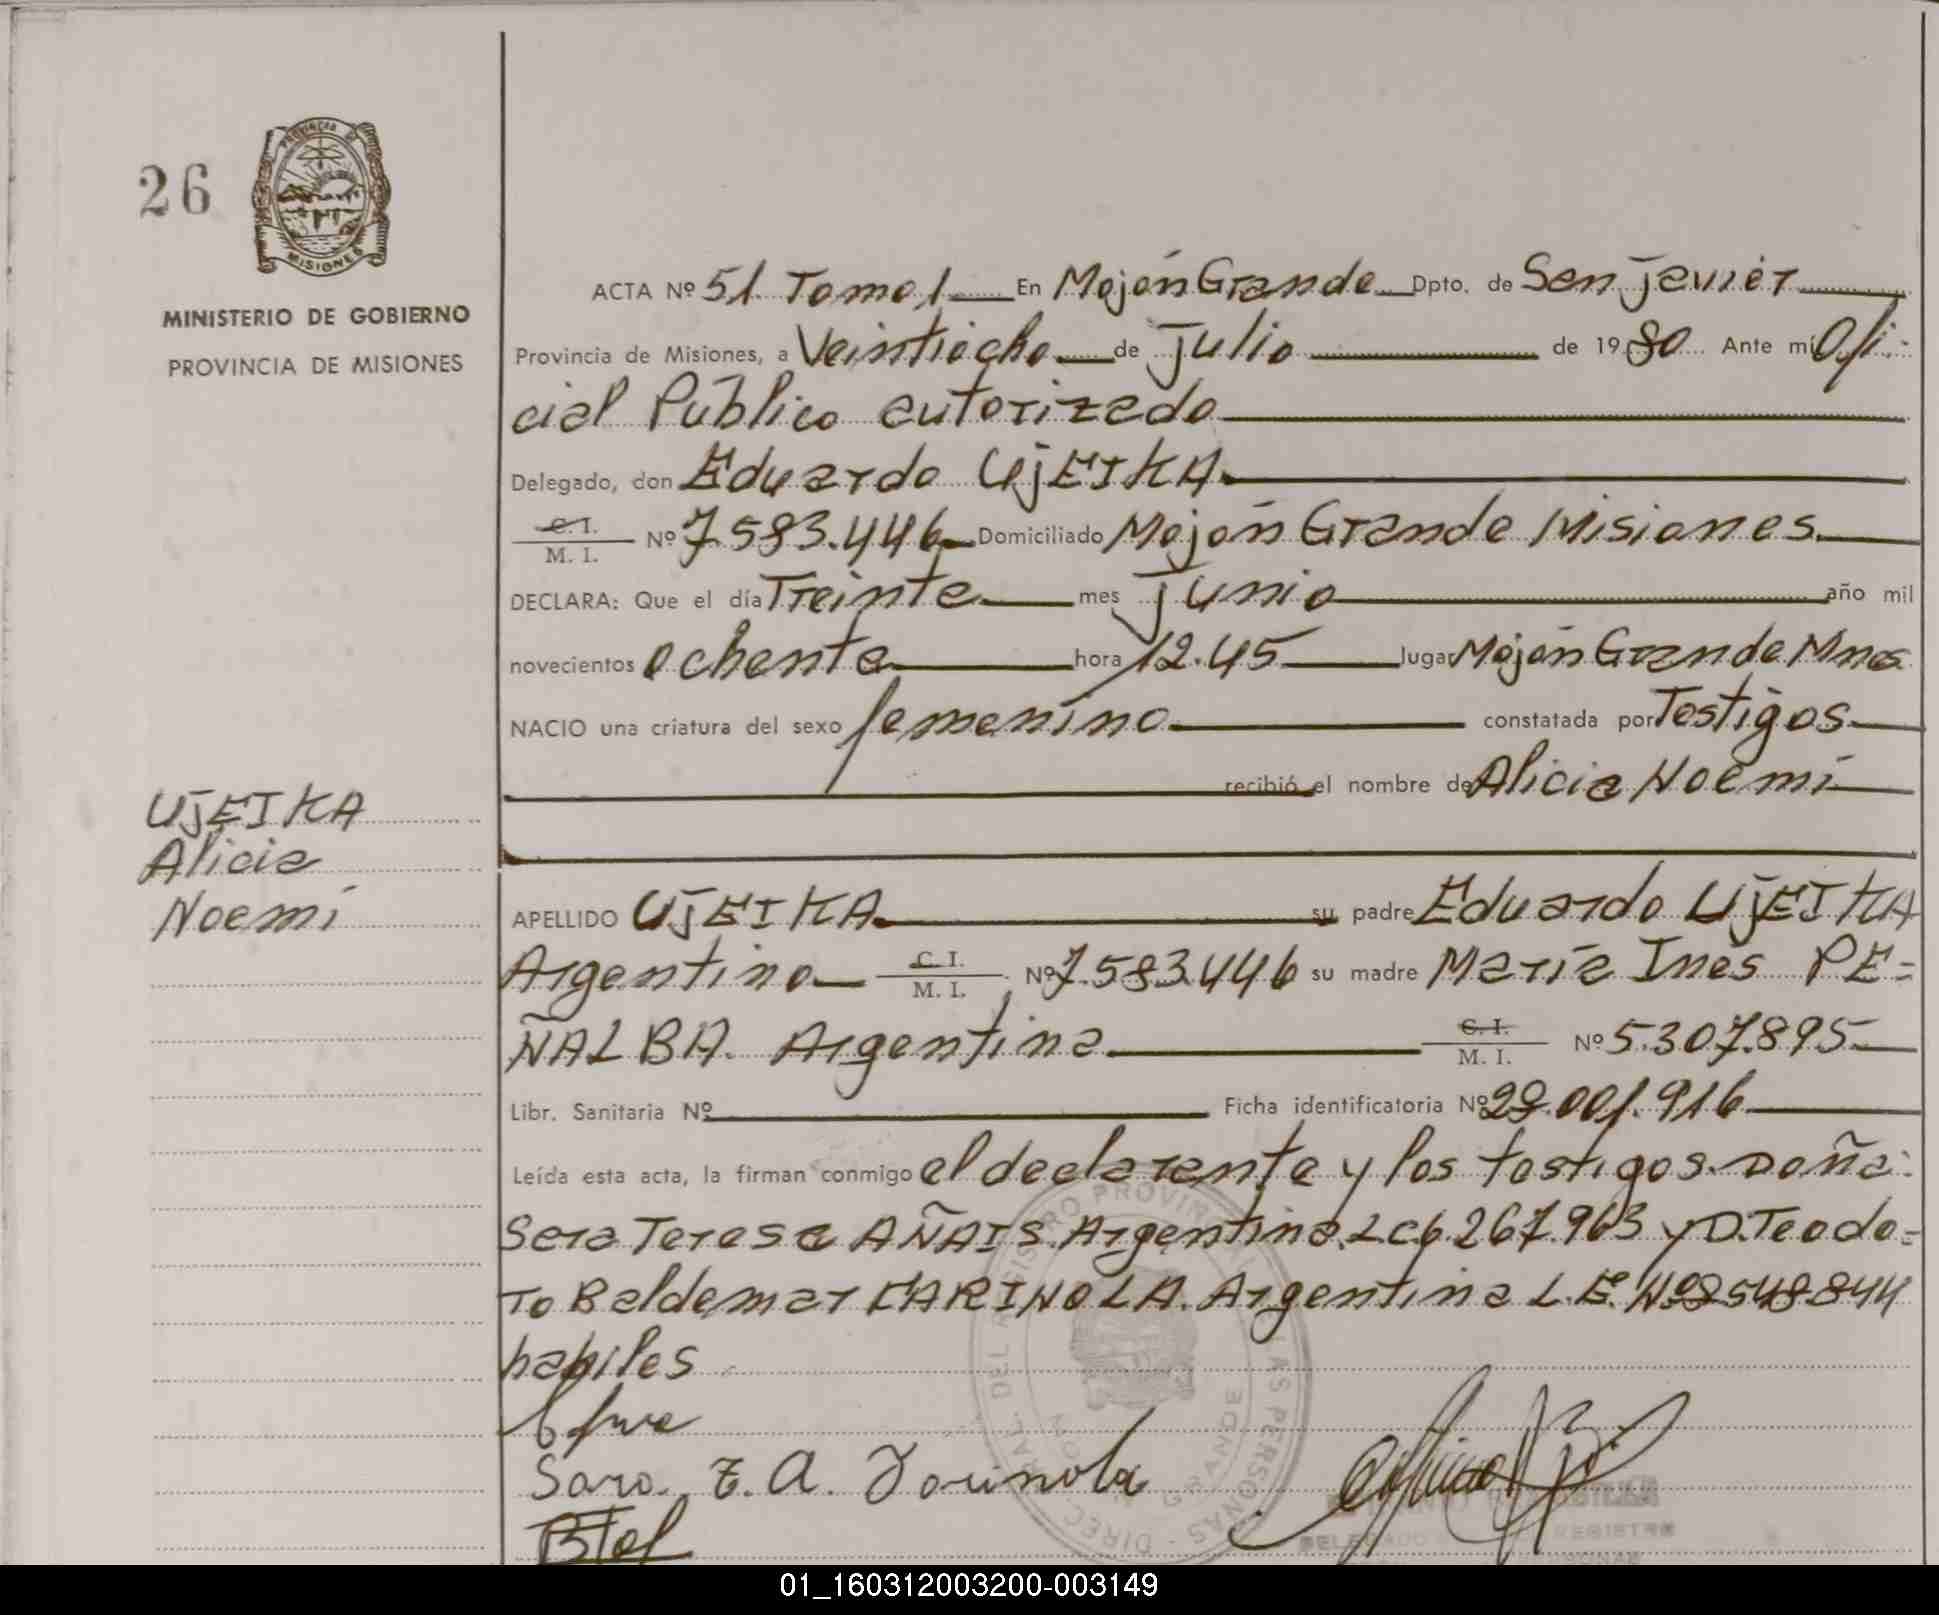 26
PROVINCIA DE
MISIONES
MINISTERIO DE GOBIERNO
PROVINCIA DE MISIONES
UJEIKA
Alicia
Noemí
ACTA Nº 51. Tomo 1 En Mojón Grande Dpto. de San Javier
Provincia de Misiones, a Veintiocho de Julio de 1980 Ante mí Ofi-
cial Público autorizado
Delegado, don Eduardo UJEIKA
C. I.
M. I. Nº 7.583.446 Domiciliado Mojón Grande Misiones
DECLARA: Que el día Treinta mes Junio año mil
novecientos ochenta hora 12.45 lugar Mojón Grande Mnes
NACIO una criatura del sexo femenino constatada por Testigos
recibió el nombre de Alicia Noemí
APELLIDO UJEIKA su padre Eduardo UJEIKA
Argentino C. I. M. I. Nº 7.583.446 su madre María Inés PE=
ÑALBA. Argentina C. I. M. I. Nº 5.307.895
Libr. Sanitaria Nº Ficha identificatoria Nº 29.001.916
Leída esta acta, la firman conmigo el declarante y los testigos Doña
Sara Teresa AÑAIS. Argentina. L.C 6.267.963 y D. Teodo=
ro Baldemar FARINOLA. Argentina L.E. Nº 8548844
habiles
Sara. T. A. Farinola
DIREC. GRAL. DEL REGISTRO PROVINCIAL DE LAS PERSONAS
MOJON GRANDE
DELEGADO REGISTRO
01_160312003200-003149